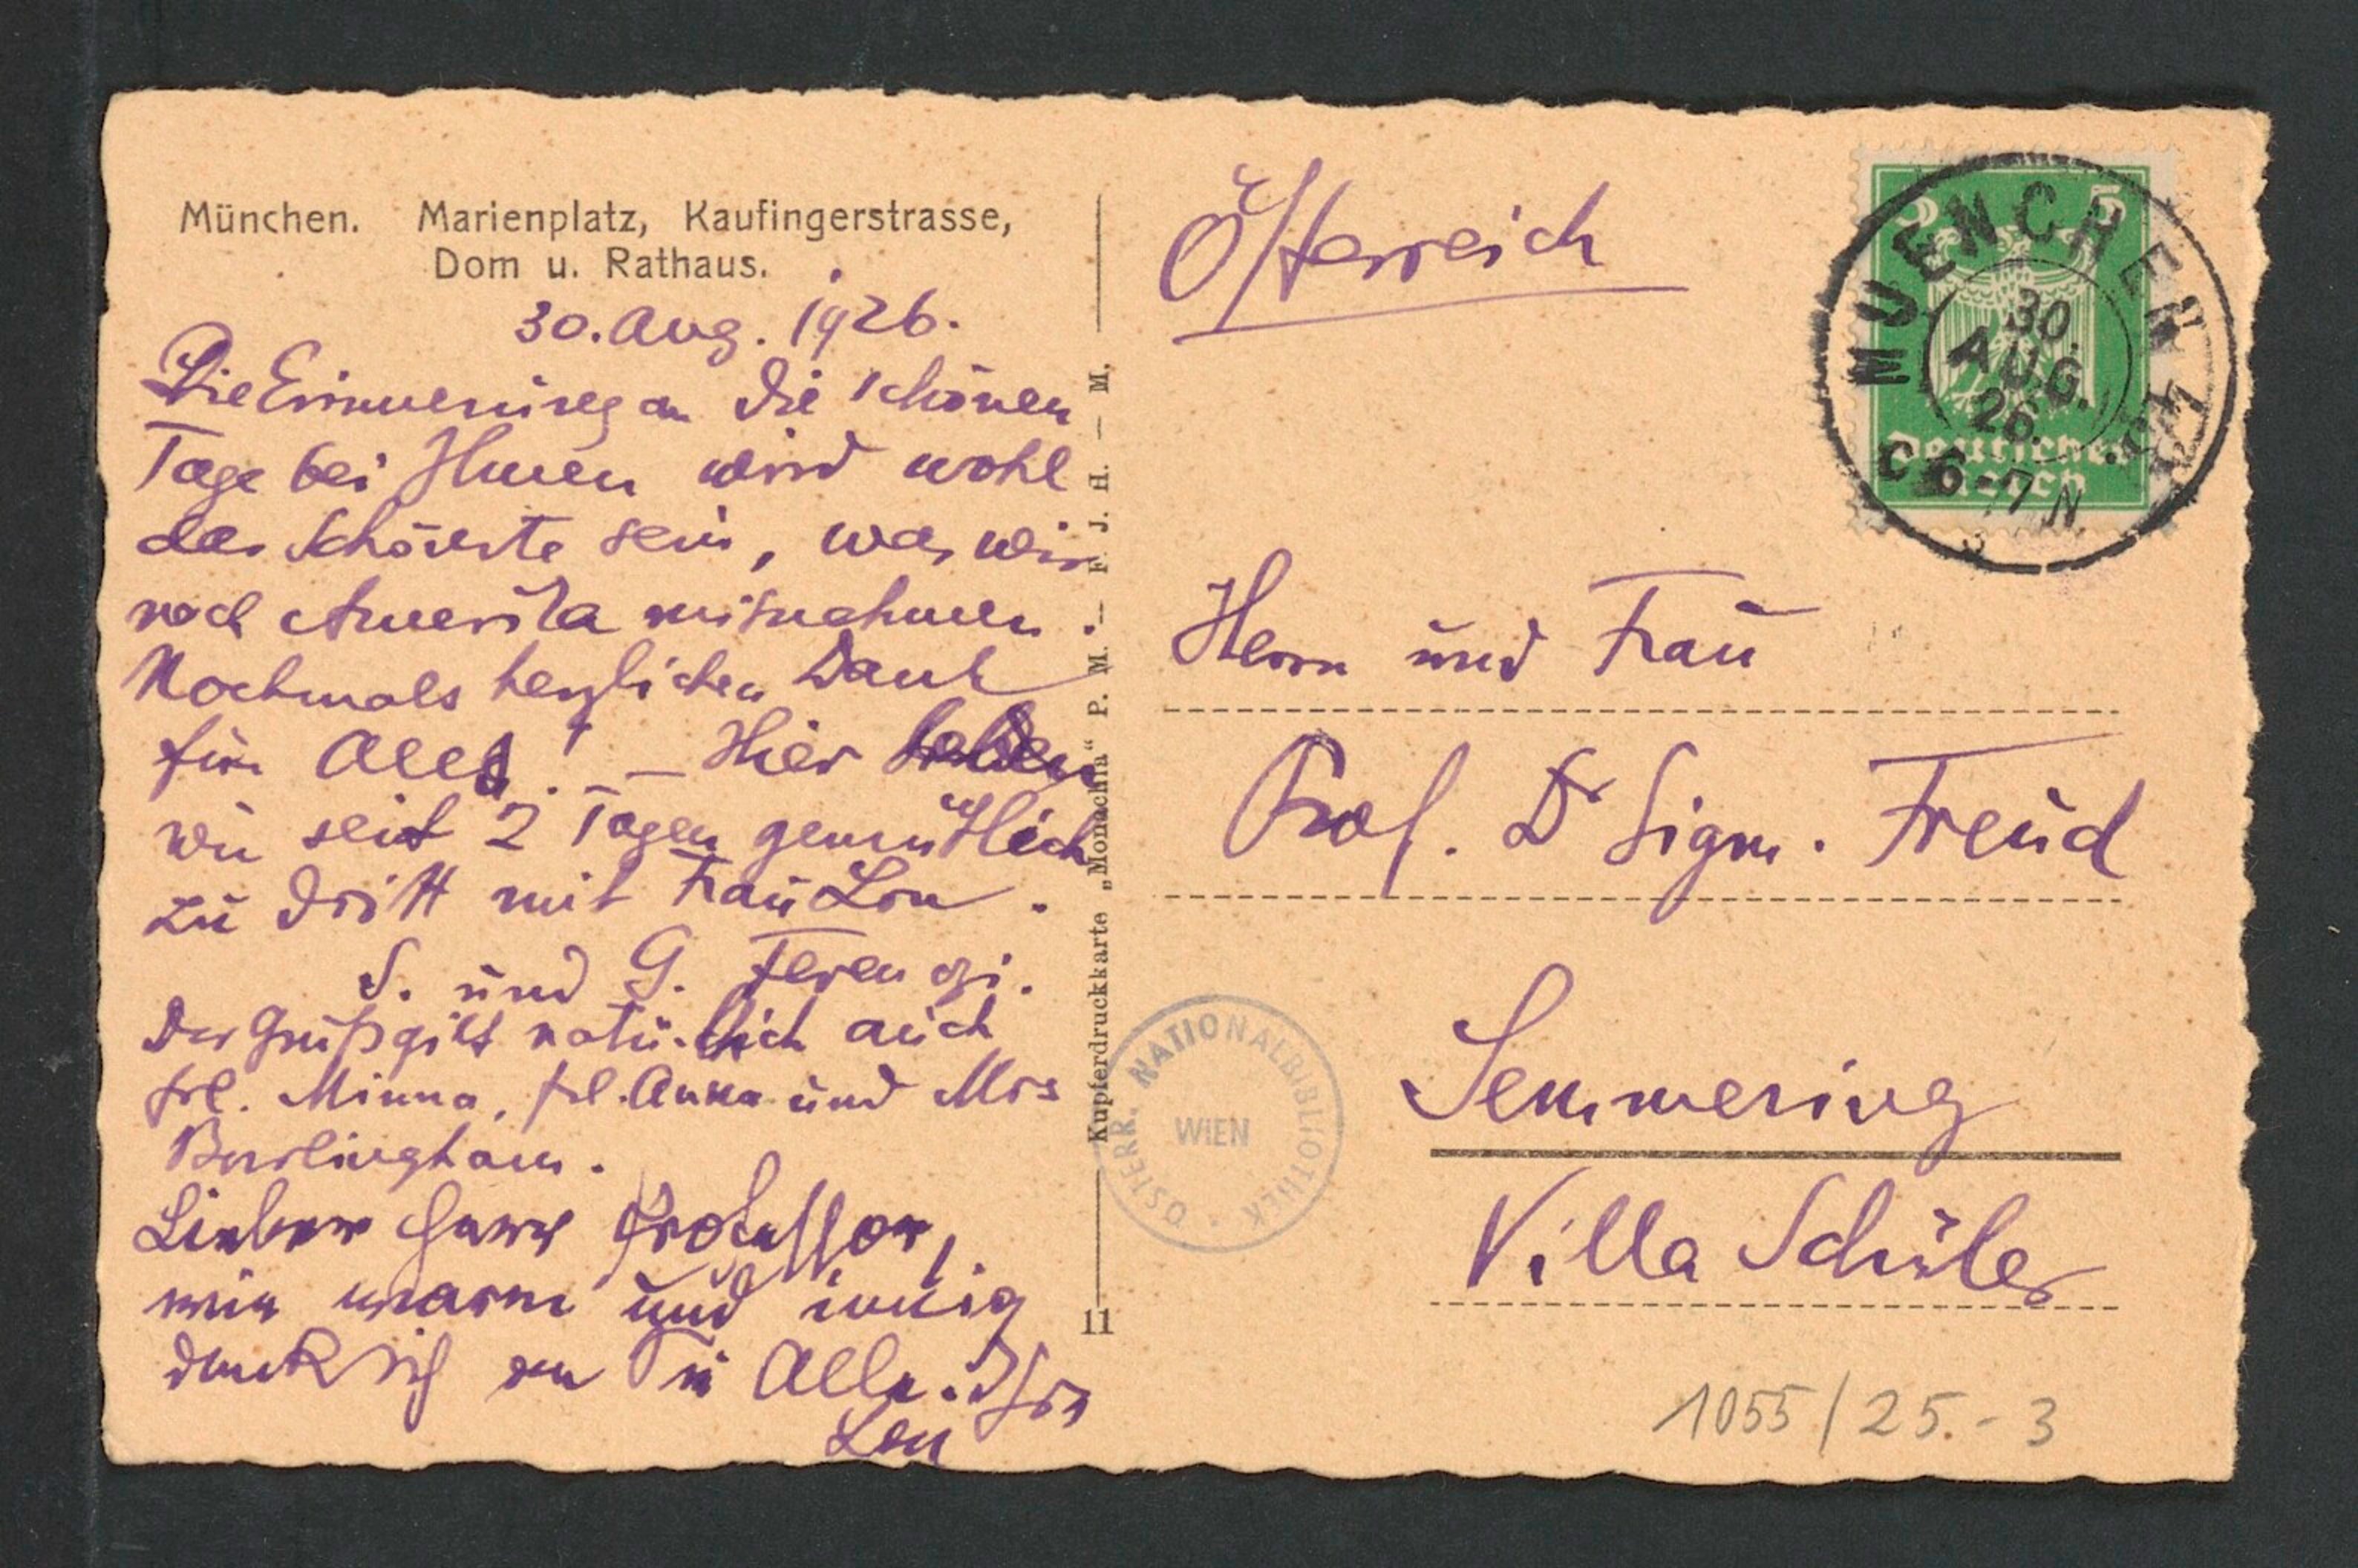 München. Marienplatz, Kaufingerstrasse,
Dom u. Rathaus.
30. Aug. 1926.
Die Erinnerung an die schönen
Tage bei Ihnen wird wohl
das Schönste sein, was wir
nach Amerika mitnehmen.
Nochmals herzlichen Dank
für Alles! — Hier leben
wir seit 2 Tagen gemütlich
zu dritt mit Frau Lou.
S. und G. Ferenczi.
Der Gruß gilt natürlich auch
Frl. Minna, Frl. Anna und Mrs
Burlingham.
Lieber Herr Professor,
wie warm und innig
denk ich an Sie Alle. Ihre
Lou
Kupferdruckkarte „Monachia" P. M. M. — F. J. H. — M.
11
Österreich
MUENCHEN
30.
AUG.
26.
6-7 N.
5
Deutsches
Reich
Herrn und Frau
Prof. Dr Sigm. Freud
Semmering
Villa Schüler
ÖSTERR. NATIONALBIBLIOTHEK
WIEN
1055/25.-3